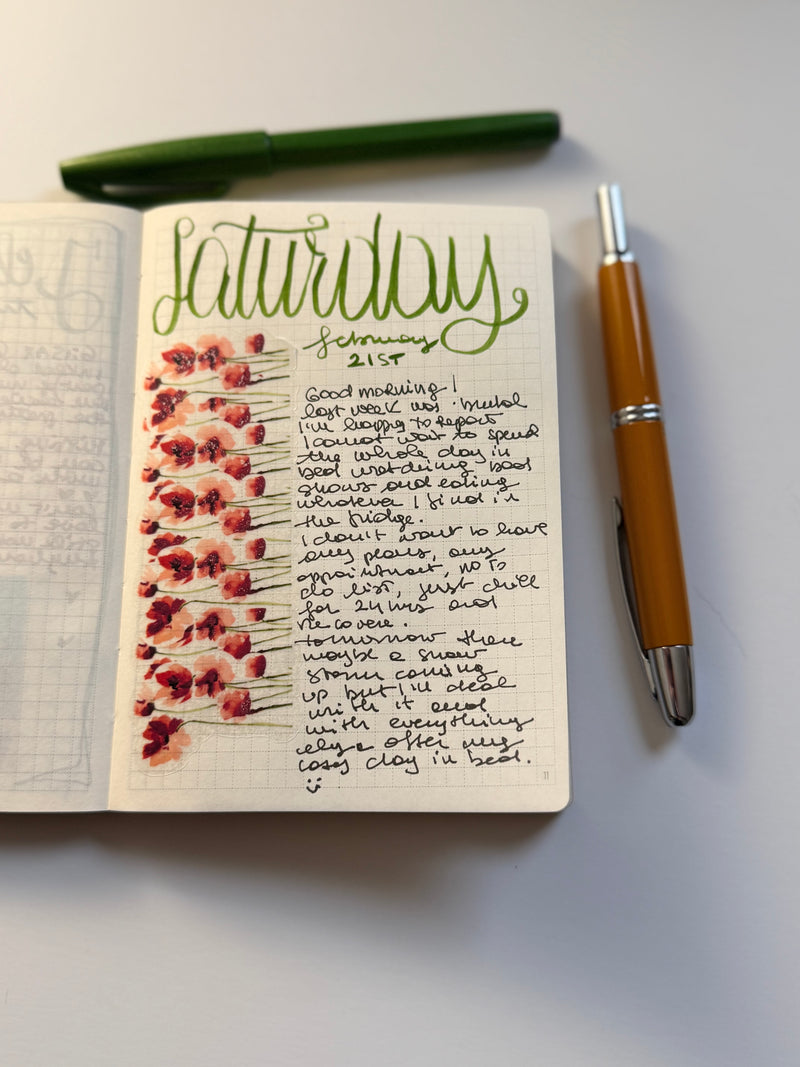 Saturday
February
21ST
Good morning!
last week was brutal
I'm happy to report
I cannot wait to spend
the whole day in
bed watching bad
shows and eating
whatever I find in
the fridge.
I don't want to have
any plans, any
appointment, no to
do list, just chill
for 24hrs and
recovere.
tomorrow there
maybe a snow
storm coming
up but I'll deal
with it and
with everything
else after my
cosy day in bed.
11